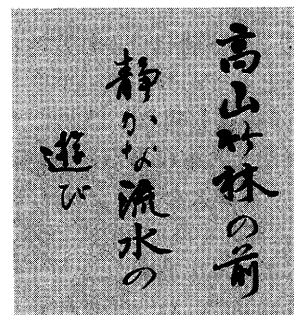 高山竹林の前
静かな流水の
遊び